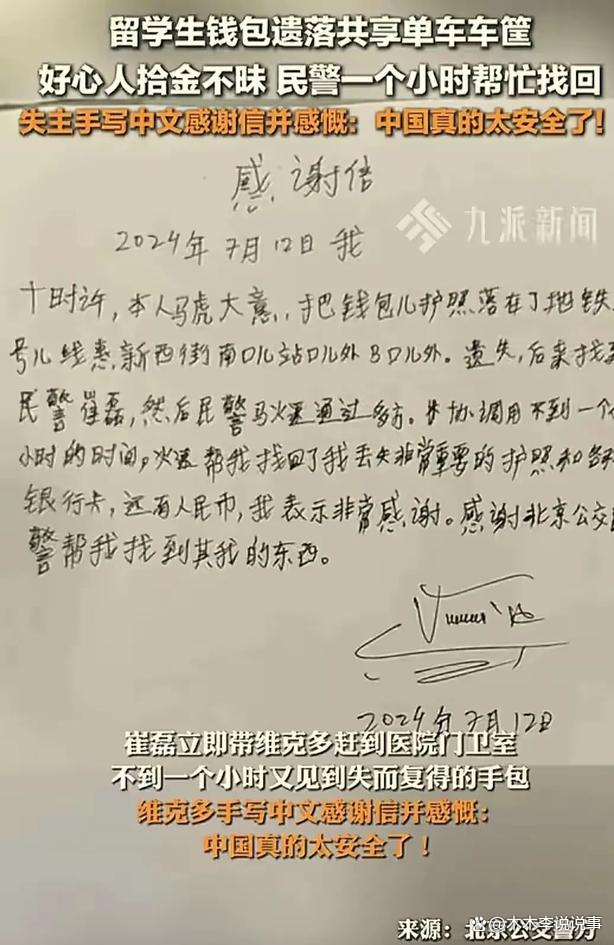 留学生钱包遗落共享单车车筐
好心人拾金不昧 民警一个小时帮忙找回
失主手写中文感谢信并感慨：中国真的太安全了！
感谢信
九派新闻
2024年7月12日 我
十时许，本人马虎大意，把钱包儿护照落在了地铁
号儿线惠新西街南口儿站口儿外B口儿外。遗失，后来找
民警崔磊，然后民警马火速通过多方。协调用不到一个
小时的时间，火速帮我找回了我丢失非常重要的护照和各种
银行卡，还有人民币，我表示非常感谢。感谢北京公交
警帮我找到其我的东西。
2024年7月12日
崔磊立即带维克多赶到医院门卫室
不到一个小时又见到失而复得的手包
维克多手写中文感谢信并感慨：
中国真的太安全了！
来源：北京公交警方
@木木李说说事